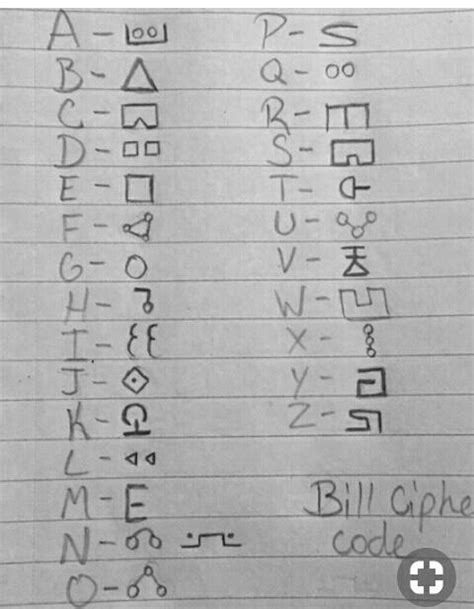 A -
B -
C -
D -
E -
F -
G -
H -
I -
J -
K -
L -
M -
N -
O -
P -
Q -
R -
S -
T -
U -
V -
W -
X -
Y -
Z -
Bill Ciphe
code